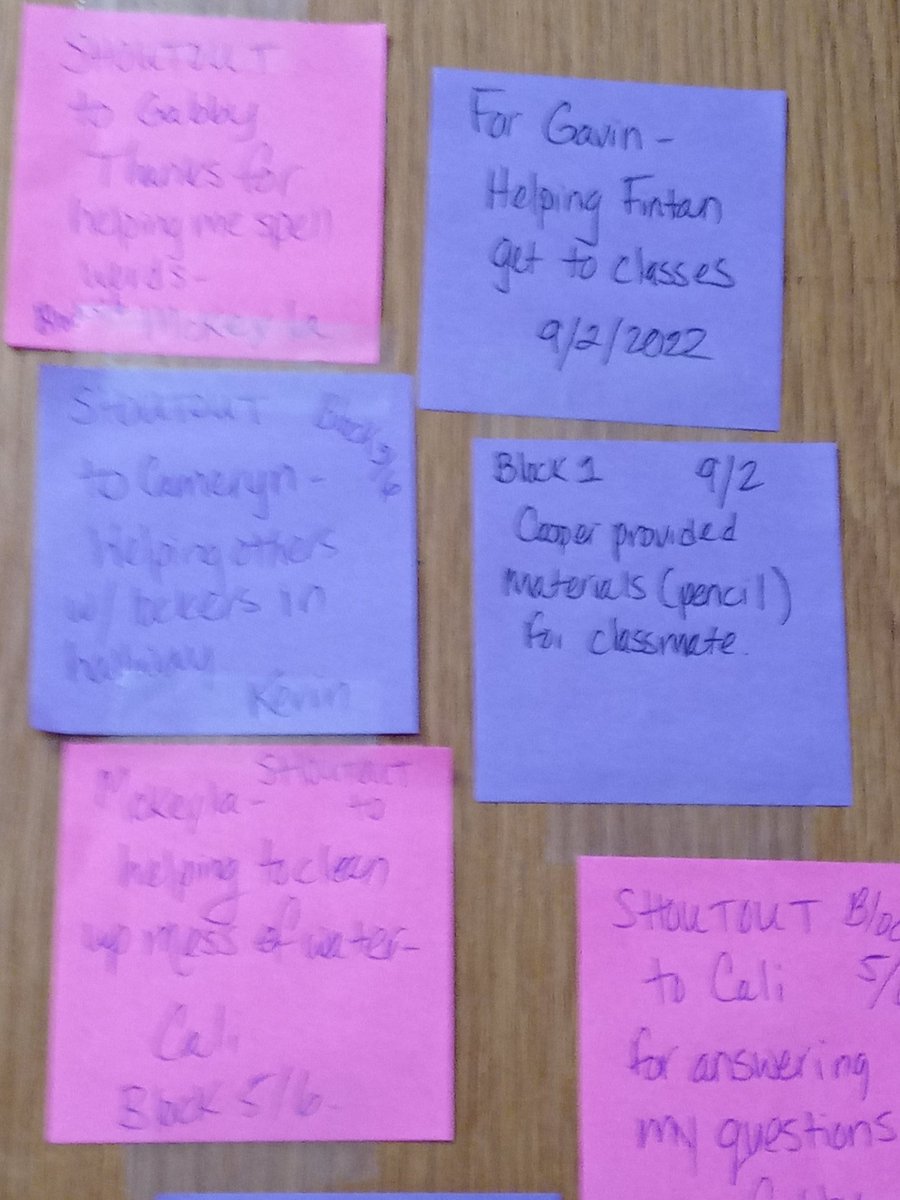 SHOUTOUT
to Gabby
Thanks for
helping me spell
words-
Mckeyla
For Gavin -
Helping Fintan
get to classes
9/2/2022
SHOUTOUT Block 5/6
to Cameryn -
Helping others
w/ lockers in
hallway
Kevin
Block 1 9/2
Cooper provided
materials (pencil)
for classmate.
SHOUTOUT
Mckeyla- to
helping to clean
up mess of water-
Cali
Block 5/6-
SHOUTOUT Bloc
to Cali 5/
for answering
my questions